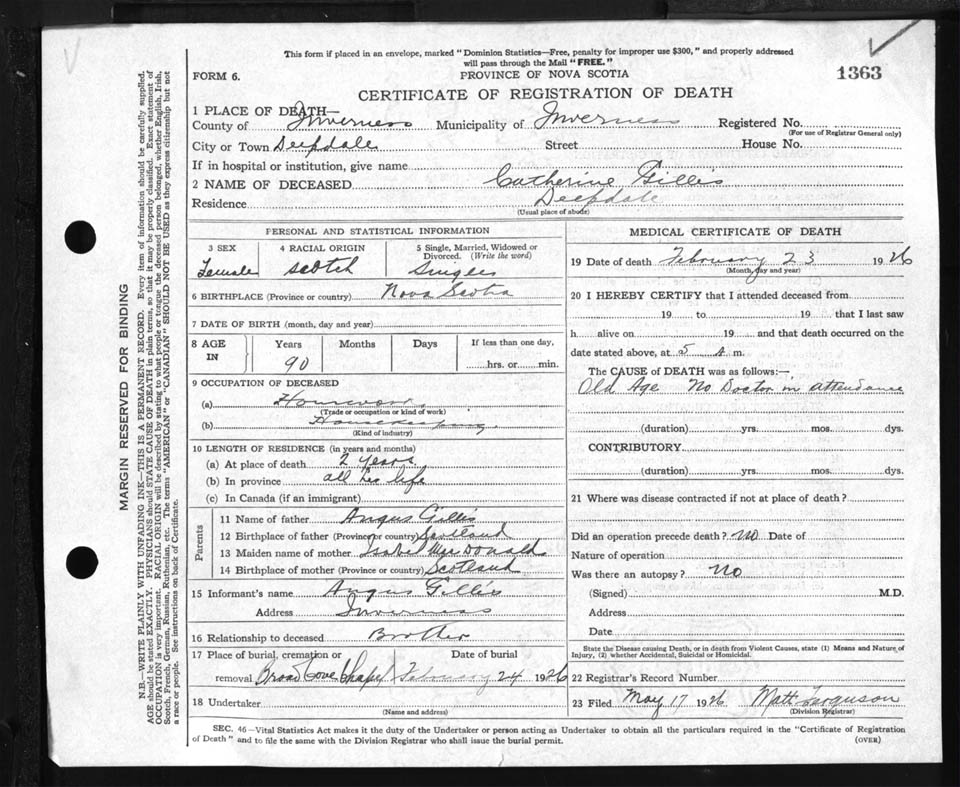 This form if placed in an envelope, marked "Dominion Statistics—Free, penalty for improper use $300," and properly addressed
will pass through the Mail "FREE."
FORM 6.
PROVINCE OF NOVA SCOTIA
1363
CERTIFICATE OF REGISTRATION OF DEATH
1 PLACE OF DEATH—
County of Inverness Municipality of Inverness Registered No.
(For use of Registrar General only)
City or Town Deepdale Street House No.
If in hospital or institution, give name
2 NAME OF DECEASED Catherine Gillis
Residence Deepdale
(Usual place of abode)
PERSONAL AND STATISTICAL INFORMATION
3 SEX 4 RACIAL ORIGIN 5 Single, Married, Widowed or
Divorced. (Write the word)
Female Scotch Single
6 BIRTHPLACE (Province or country) Nova Scotia
7 DATE OF BIRTH (month, day and year)
8 AGE IN Years Months Days If less than one day,
90 hrs. or min.
9 OCCUPATION OF DECEASED
(a)
(Trade or occupation or kind of work)
(b) Housekeeping
(Kind of industry)
10 LENGTH OF RESIDENCE (in years and months)
(a) At place of death 2 years
(b) In province all her life
(c) In Canada (if an immigrant)
Parents
11 Name of father Angus Gillis
12 Birthplace of father (Province or country) Scotland
13 Maiden name of mother Isabel MacDonald
14 Birthplace of mother (Province or country) Scotland
15 Informant's name Angus Gillis
Address Inverness
16 Relationship to deceased Brother
17 Place of burial, cremation or Date of burial
removal Broad Cove Chapel February 24 1926
18 Undertaker
(Name and address)
MEDICAL CERTIFICATE OF DEATH
19 Date of death February 23 1926
(Month, day and year)
20 I HEREBY CERTIFY that I attended deceased from
19 to 19 that I last saw
h alive on 19 and that death occurred on
date stated above, at 5 A. m.
The CAUSE of DEATH was as follows:—
Old Age No Doctor in attendance
(duration) yrs. mos. dys.
CONTRIBUTORY
(duration) yrs. mos. dys.
21 Where was disease contracted if not at place of death?
Did an operation precede death? No Date of
Nature of operation
Was there an autopsy? No
(Signed) M.D.
Address
Date
State the Disease causing Death, or in death from Violent Causes, state (1) Means and Nature of
Injury, (2) whether Accidental, Suicidal or Homicidal.
22 Registrar's Record Number
23 Filed May 17 1926 Matt Ferguson
(Division Registrar)
SEC. 46—Vital Statistics Act makes it the duty of the Undertaker or person acting as Undertaker to obtain all the particulars required in the "Certificate of Registration
of Death" and to file the same with the Division Registrar who shall issue the burial permit. (OVER)
MARGIN RESERVED FOR BINDING
N.B.—WRITE PLAINLY WITH UNFADING INK—THIS IS A PERMANENT RECORD. Every item of information should be carefully supplied.
AGE should be stated EXACTLY. PHYSICIANS should STATE CAUSE OF DEATH in plain terms, so that it may be properly classified. Exact statement of
OCCUPATION is very important. RACIAL ORIGIN will be described by stating to what people or tongue the deceased person belonged, whether English, Irish,
Scotch, French, German, Russian, Ruthenian, etc. The terms "AMERICAN" or "CANADIAN" SHOULD NOT BE USED as they express citizenship but not
a race or people. See instructions on back of Certificate.